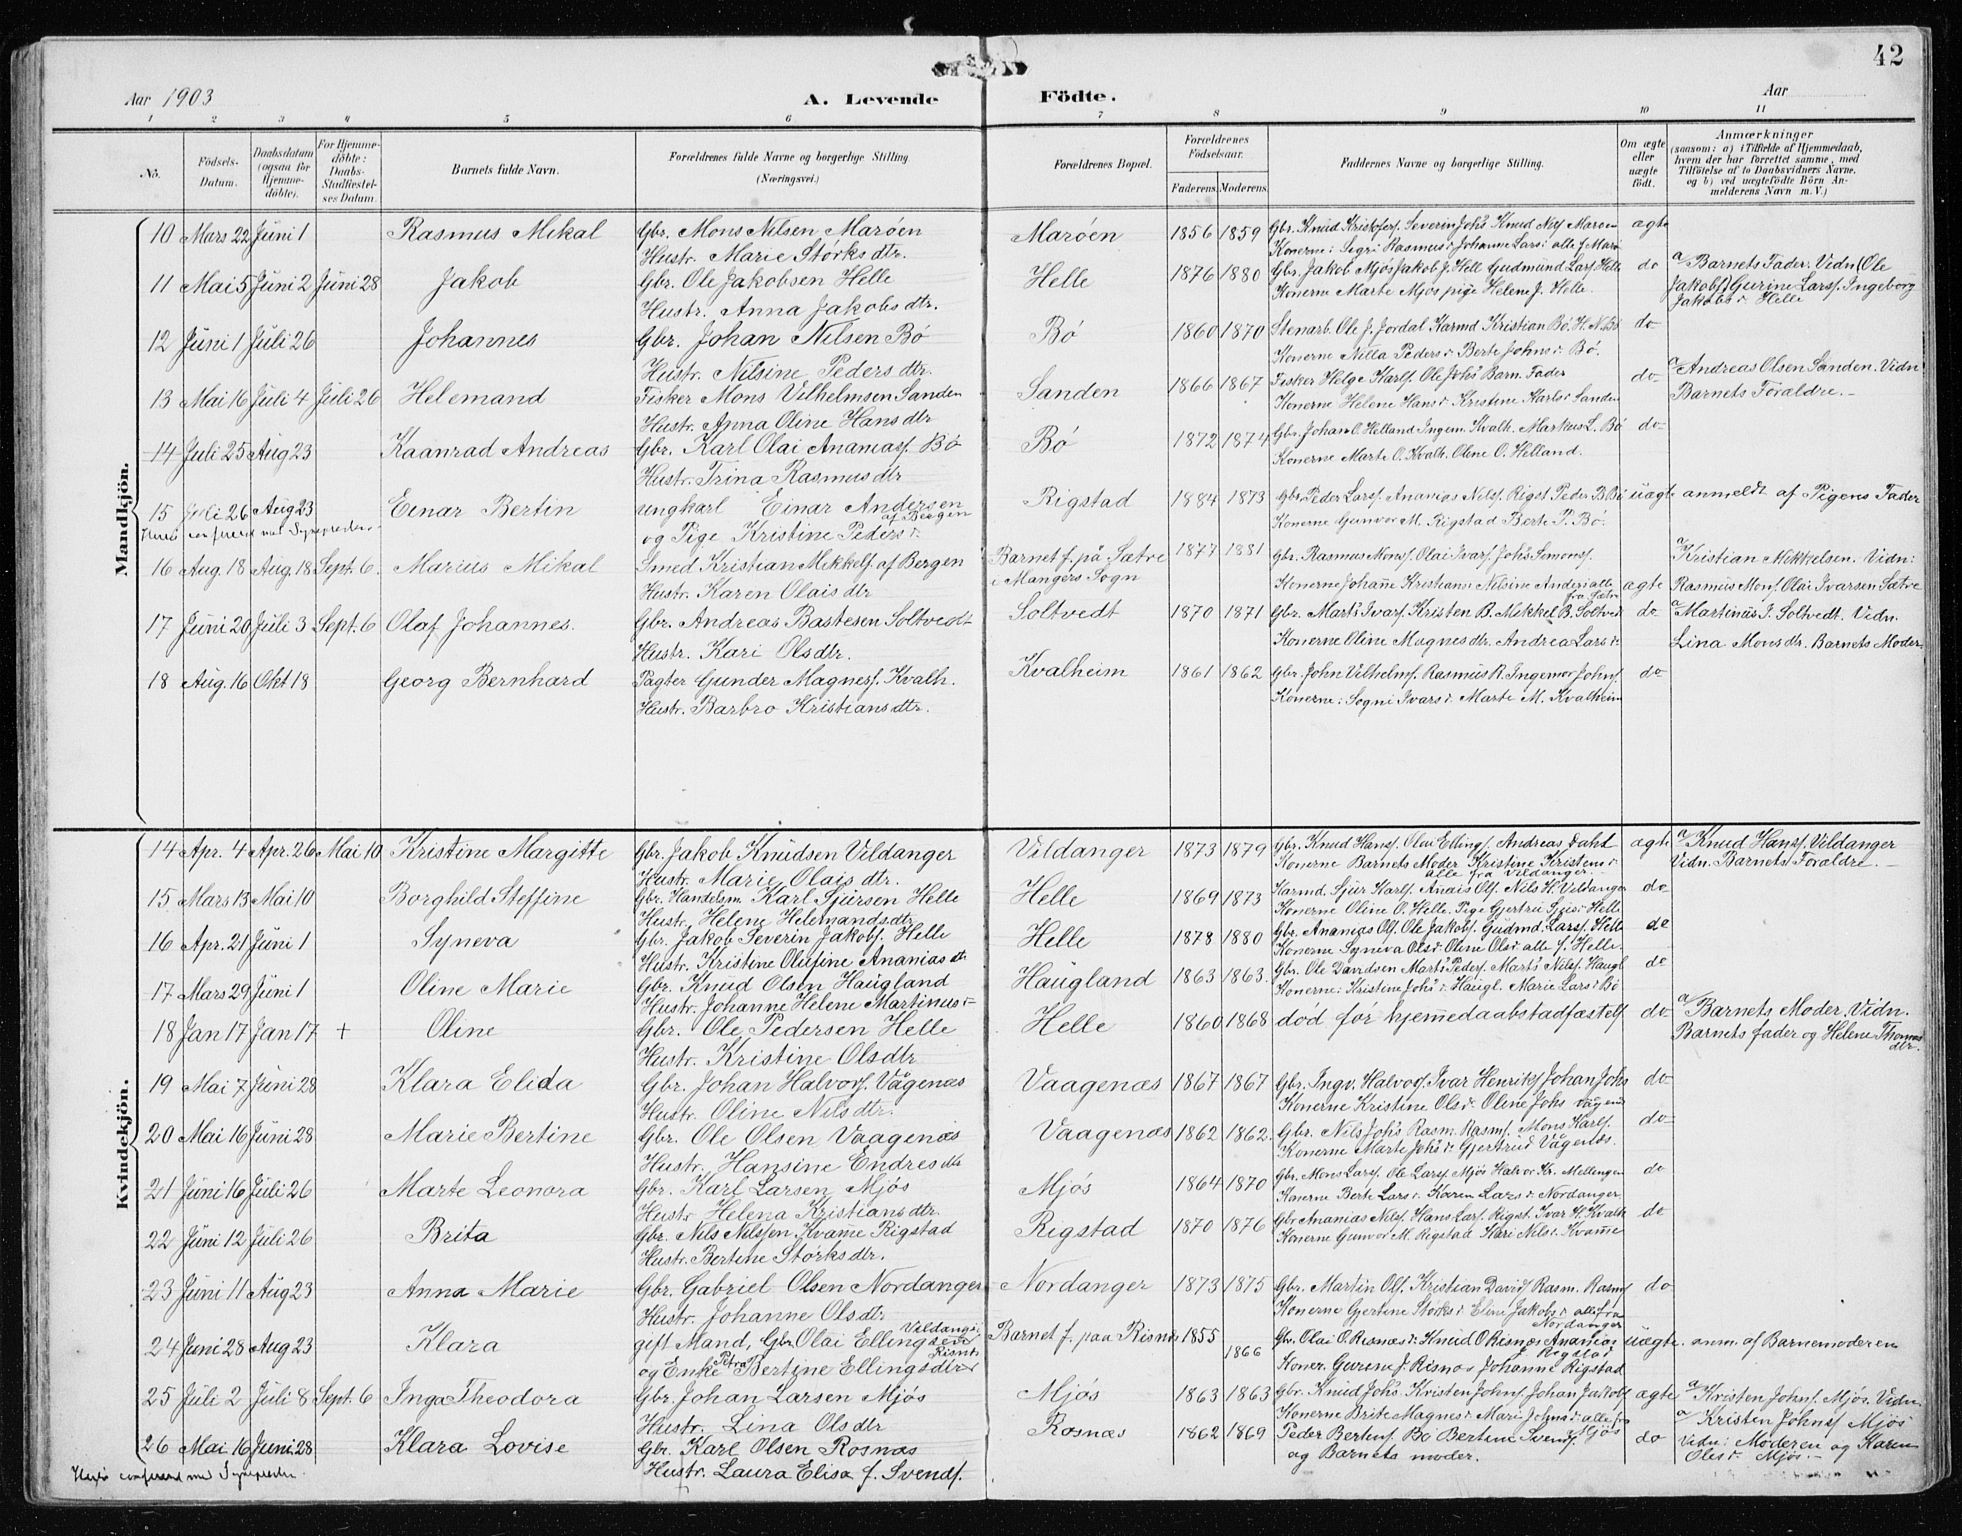 42
Aar 1903 A. Levende Födte. Aar
1 2 3 4 5 6 7 8 9 10 11
No. Födsels-Datum. Daabsdatum (ogsaa for Hjemme-döbte). For Hjemme-döbte: Daabs-Stadfæstel-ses Datum. Barnets fulde Navn. Forældrenes fulde Navne og borgerlige Stilling (Næringsvei.) Forældrenes Bopæl. Forældrenes Födselsaar. Faderens. Moderens. Faddernes Navne og borgerlige Stilling. Om ægte eller uægte födt. Anmærkninger (saasom: a) i Tilfælde af Hjemmedaab, hvem der har forrettet samme, med Tilföielse af to Daabsvidners Navne, og b) ved uægtefödte Börn An-melderens Navn m. V.)
Mandkjön.
10 Mars 22 Juni 1 Rasmus Mikal Gbr. Mons Nilsen Maröen Maröen 1856 1859 Gbr. Knud Kristofers. Severin Johs Knud Nils Maröen ægte
Hustr. Marie Störksdtr. Konerne: Sigri Rasmusd. Johanne Larsd. alle f. Marø
11 Mai 5 Juni 2 Juni 28 Jakob Gbr. Ole Jakobsen Helle Helle 1876 1880 Gbr. Jakob Mjös Jakob J. Hell Gudmund Lars. Helle do a Barnets Fader. Vidn (Ole
Hustr. Anna Jakobsdtr. Konerne Marte Mjös pige Helene J. Helle. Jakobs) Gurine Lars. Ingeborg Jakobsd. Helle
12 Juni 1 Juli 26 Johannes Gbr. Johan Nilsen Bö Bö 1860 1870 Stenarb. Ole J. Jordal Karmd Kristian Bö. H. N. Bö do
Hustr. Nilsine Pedersdtr. Konerne Nilla Pedersd. Berte Johnsd. Bö.
13 Mai 16 Juli 4 Juli 26 Helemand Fisker Mons Vilhelmsen Sanden Sanden 1866 1867 Fisker Helge Karls. Ole Johs Barn. Fader do a Andreas Olsen Sanden. Vidn
Hustr. Anna Oline Hansdtr Konerne Helene Hansd. Kristine Karlsd. Sanden Barnets Forældre.
14 Juli 25 Aug 23 Kaanrad Andreas Gbr. Karl Olai Ananias. Bö Bö 1872 1874 Gbr. Johan O. Helland Ingem. Kvalh. Markus L. Bö do
Hustr. Trina Rasmusdtr Konerne Marte O. Kvalh. Oline O. Helland.
15 Juli 26 Aug 23 Einar Bertin ungkarl Einar Andersen af Bergen Rigstad 1884 1873 Gbr. Peder Lars. Ananias Nils. Rigst. Peder B. Bö uægte anmeldt af Pigens Fader
og Pige Kristine Pedersd. Konerne Gunvor M. Rigstad Berte P. Bö.
16 Aug. 18 Aug. 18 Sept. 6. Marius Mikal Smed Kristian Mikkels. af Bergen Barnet f. på Sætre i Mangers Sogn 1877 1881 Gbr. Rasmus Mons. Olai Ivars. Johs Simons. a Kristian Mikkelsen. Vidn:
Hustr. Karen Olaisdtr Konerne Johane Kristiansd. Nilsine Andersd. alle fra Sætre ægte Rasmus Mons. Olai Ivarsen Sætre
17 Juni 20 Juli 3 Sept. 6 Olaf Johannes. Gbr. Andreas Bastesen Soltvedt Soltvedt 1870 1871 Gbr. Marts Ivars. Kristen B. Mikkel B. Soltved do a Martinus J. Soltvedt. Vidn.
Hustr. Kari Olsdtr. Konerne Oline Magnesdtr. Andrea Larsd. Lina Monsdtr. Barnets Moder.
18 Aug. 16 Okt 18 Georg Bernhard Pagter Gunder Magnes. Kvalh. Kvalheim 1861 1862 Gbr. John Vilhelms. Rasmus R. Ingemor Johns. do
Hustr. Barbro Kristiansdtr. Konerne: Sogni Ivarsd. Marte M. Kvalheim
Kvindekjön.
14 Apr. 4 Apr. 26 Mai 10 Kristine Margitte Gbr. Jakob Knudsen Vildanger Vildanger 1873 1879 Gbr. Knud Hans. Olai Ellings. Andreas Dahl ægte a Knud Hans. Vildanger
Hustr. Marie Olaisdtr. Konerne Barnets Moder Kristine Kristensd. alle fra Vildanger. Vidn. Barnets Forældre.
15 Mars 13 Mai 10 Borghild Steffine Gbr. Handelsm. Karl Sjursen Helle Helle 1869 1873 Karmd. Sjur Karls. Anais Ols. Nils H. Vildanger do
Hustr. Helene Helemandsdtr Konerne Oline O. Helle. Pige Gjertru Sjusd. Helle
16 Apr. 21 Juni 1 Syneva Gbr. Jakob Severin Jakobs. Helle Helle 1878 1880 Gbr. Ananias Ols. Ole Jakobs. Gudmd. Lars. Helle do
Hustr. Kristine Olufine Ananiasdtr Konerne Syneva Olsd. Oline Olsd. alle f. Helle.
17 Mars 29 Juni 1 Oline Marie Gbr. Knud Olsen Haugland Haugland 1863 1863. Gbr. Ole Davidsen Marts Peders. Marts Nils. Haugl do
Hustr. Johanne Helene Martinusd. Konerne: Kristine Johsd. Haugl. Marie Larsd. Bö
18 Jan 17 Jan 17 + Oline Gbr. Ole Pedersen Helle Helle 1860 1868 död for hjemmedaabstadfæstels do a Barnets Moder. Vidn.
Hustr. Kristine Olsdtr Barnets fader og Helene Thomasdtr.
19 Mai 7 Juni 28 Klara Elida Gbr. Johan Halvors. Vågenæs Vaagenæs 1867 1867 Gbr. Ingv. Halvors. Ivar Henriks. Johan Johs do
Hustr. Oline Nilsdtr. Konerne Kristine Olsd. Oline Johs Vågenæs
20 Mai 16 Juni 28 Marie Bertine Gbr. Ole Olsen Vaagenæs Vaagenæs 1862 1862. Gbr. Nils Johs. Rasm. Rasms. Mons Karls. do
Hustr. Hansine Endresdtr Konerne Marte Johsd. Gjertrud Vågenæs.
21 Juni 16 Juli 26 Marte Leonora Gbr. Karl Larsen Mjös Mjös 1864 1870 Gbr. Mons Lars. Ole Lars. Mjös Halvor Kr. Mellingen do
Hustr Helena Kristiansdtr. Konerne Berte Larsd. Karen Larsd. Nordanger
22 Juni 12 Juli 26 Brita Gbr. Nils Nilssen Kvamme Rigstad Rigstad 1870 1876 Gbr Ananias Nils. Hans Lars. Rigst. Ivar H. Kvalh do
Hustr. Bertine Störksdtr. Konerne Gunvor M. Rigstad Kari Nilsd. Kvamme
23 Juni 11 Aug 23 Anna Marie Gbr. Gabriel Olsen Nordanger Nordanger 1873 1875 Gbr. Martin Ols. Kristian David. Rasm. Rasms do
Hustr. Johanne Olsdtr Konerne Gjertine Störksd. Eline Jakobsd. alle fra Nordanger
24 Juni 28 Aug 23 Klara gift Mand, Gbr. Olai Ellingsen Vildang. Barnet f. paa Risnes 1855 1866 Gbr. Olai O. Risnes. Knud O. Risnæs Ananias J. Rigstad uægte. anm. af Barnemoderen
og Enke Petra Bertine Ellingsdtr Risnes Koner. Gurine J. Risnes Johanne Rigstad
25 Juli 2 Juli 8 Sept. 6 Inga Theodora Gbr. Johan Larsen Mjös Mjös 1863 1863 Gbr. Knud Johs. Kristen Johns. Johan Jakobs ægte a Kristen Johns. Mjös. Vidn.
Hustr. Lina Olsdtr Konerne Brite Magnesd. Mari Johnsd. alle fra Mjös
26 Mai 16 Juni 28 Klara Lovise Gbr. Karl Olsen Rosnæs Rosnæs 1862 1869 Peder Bertens. Bö Bertine Svends. do a Kristen Johns. Mjös
Hustr. Laura Elisa f. Svends. og Barnets moder. Vidn: Moderen og Karen Olesd. Mjös.